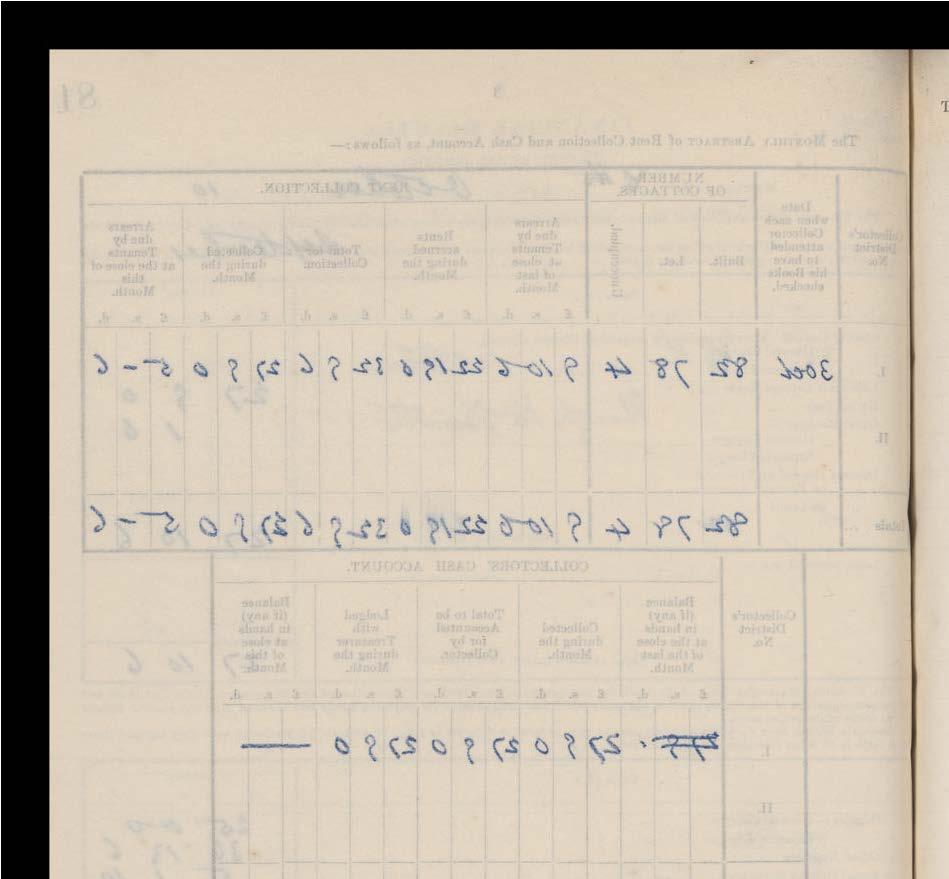 81
3
The MONTHLY ABSTRACT of Rent Collection and Cash Account, as follows:—
Collector's District No.
Date when each Collector attended to have his Books checked.
NUMBER OF COTTAGES.
Built.
Let.
Unoccupied.
RENT COLLECTION.
Arrears due by Tenants at close of last Month.
Rents accrued during the Month.
Total for Collection.
Collected during the Month.
Arrears due by Tenants at the close of this Month.
£ s. d. £ s. d. £ s. d. £ s. d. £ s. d.
I. 3 Oct 82 78 4 9 10 6 22 19 0 32 9 6 27 9 0 5 - 6
II.
Totals ... 82 78 4 9 10 6 22 19 0 32 9 6 27 9 0 5 - 6
COLLECTORS' CASH ACCOUNT.
Collector's District No.
Balance (if any) in hands at close of the last Month.
Collected during the Month.
Total to be Accounted for by Collector.
Lodged with Treasurer during the Month.
Balance (if any) in hands at close of this Month.
£ s. d. £ s. d. £ s. d. £ s. d. £ s. d.
I. 27 9 0 27 9 0 27 9 0 —
II.